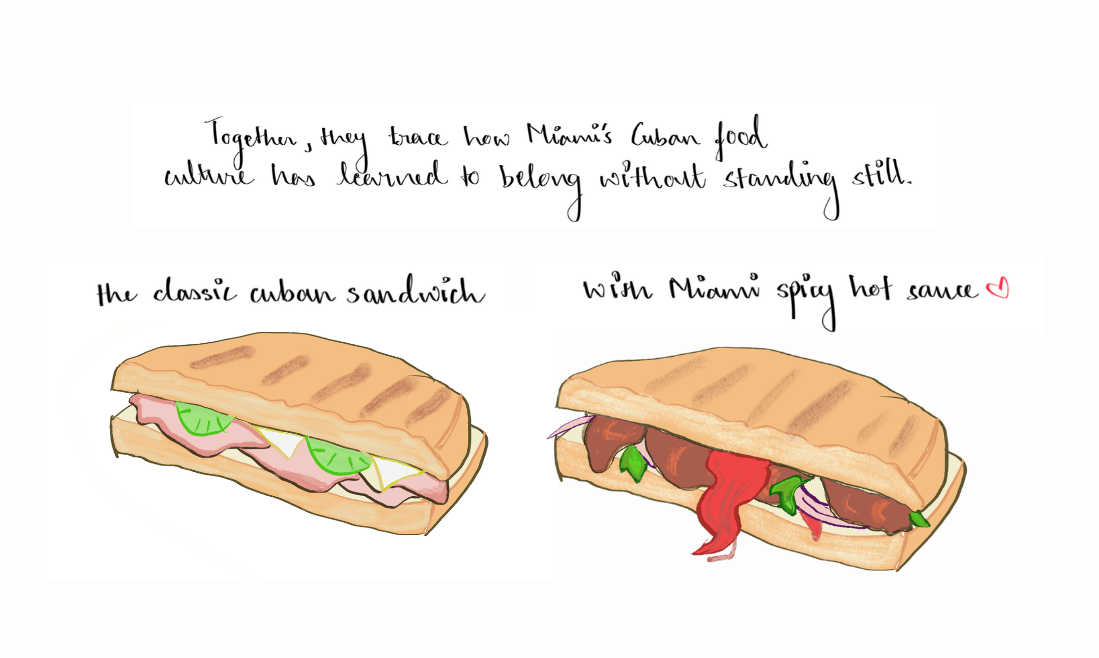 Together, they trace how Miami's Cuban food
culture has learned to belong without standing still.
the classic cuban sandwich
with Miami spicy hot sauce